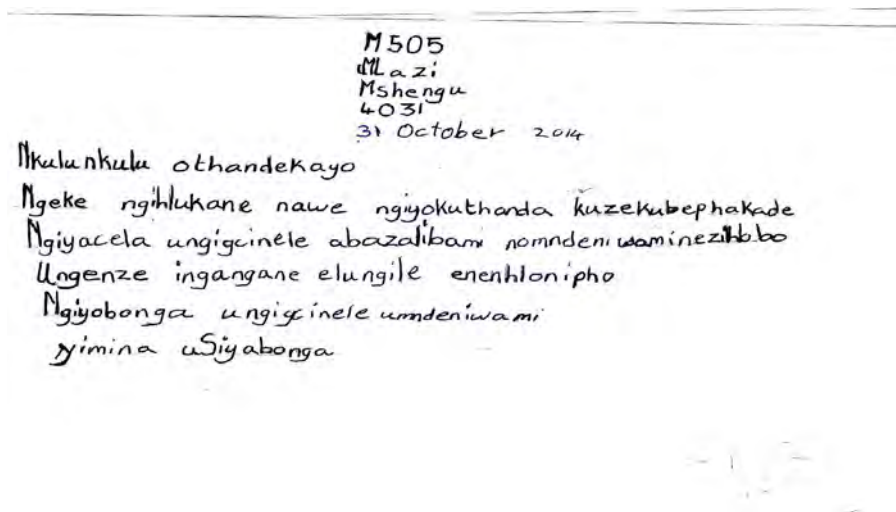 M505
Mlazi
Mshengu
4031
31 October 2014
Nkulunkulu othandekayo
Ngeke ngihlukane nawe ngiyokuthanda kuzekubephakade
Ngiyacela ungigcinele abazalibami nomndeniwaminezihlobo
Ungenze ingangane elungile enenhlonipho
Ngiyobonga ungigcinele umndeniwami
yimina uSiyabonga